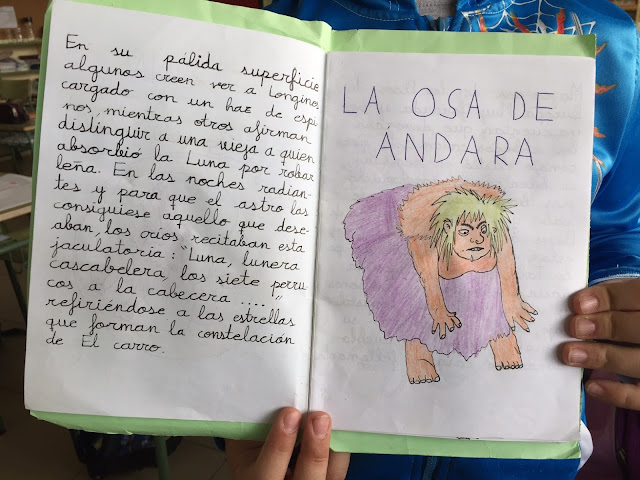 En su pálida superficie
algunos creen ver a Longinos
cargado con un haz de espi-
nos, mientras otros afirman
distinguir a una vieja a quien
absorbió la Luna por robar
leña. En las noches radian-
tes y para que el astro las
consiguiese aquello que dese-
aban, los críos recitaban esta
jaculatoria: "Luna, lunera
cascabelera, los siete perru-
cos a la cabecera ....",
refiriéndose a las estrellas
que forman la constelación
de El carro.
LA OSA DE
ÁNDARA